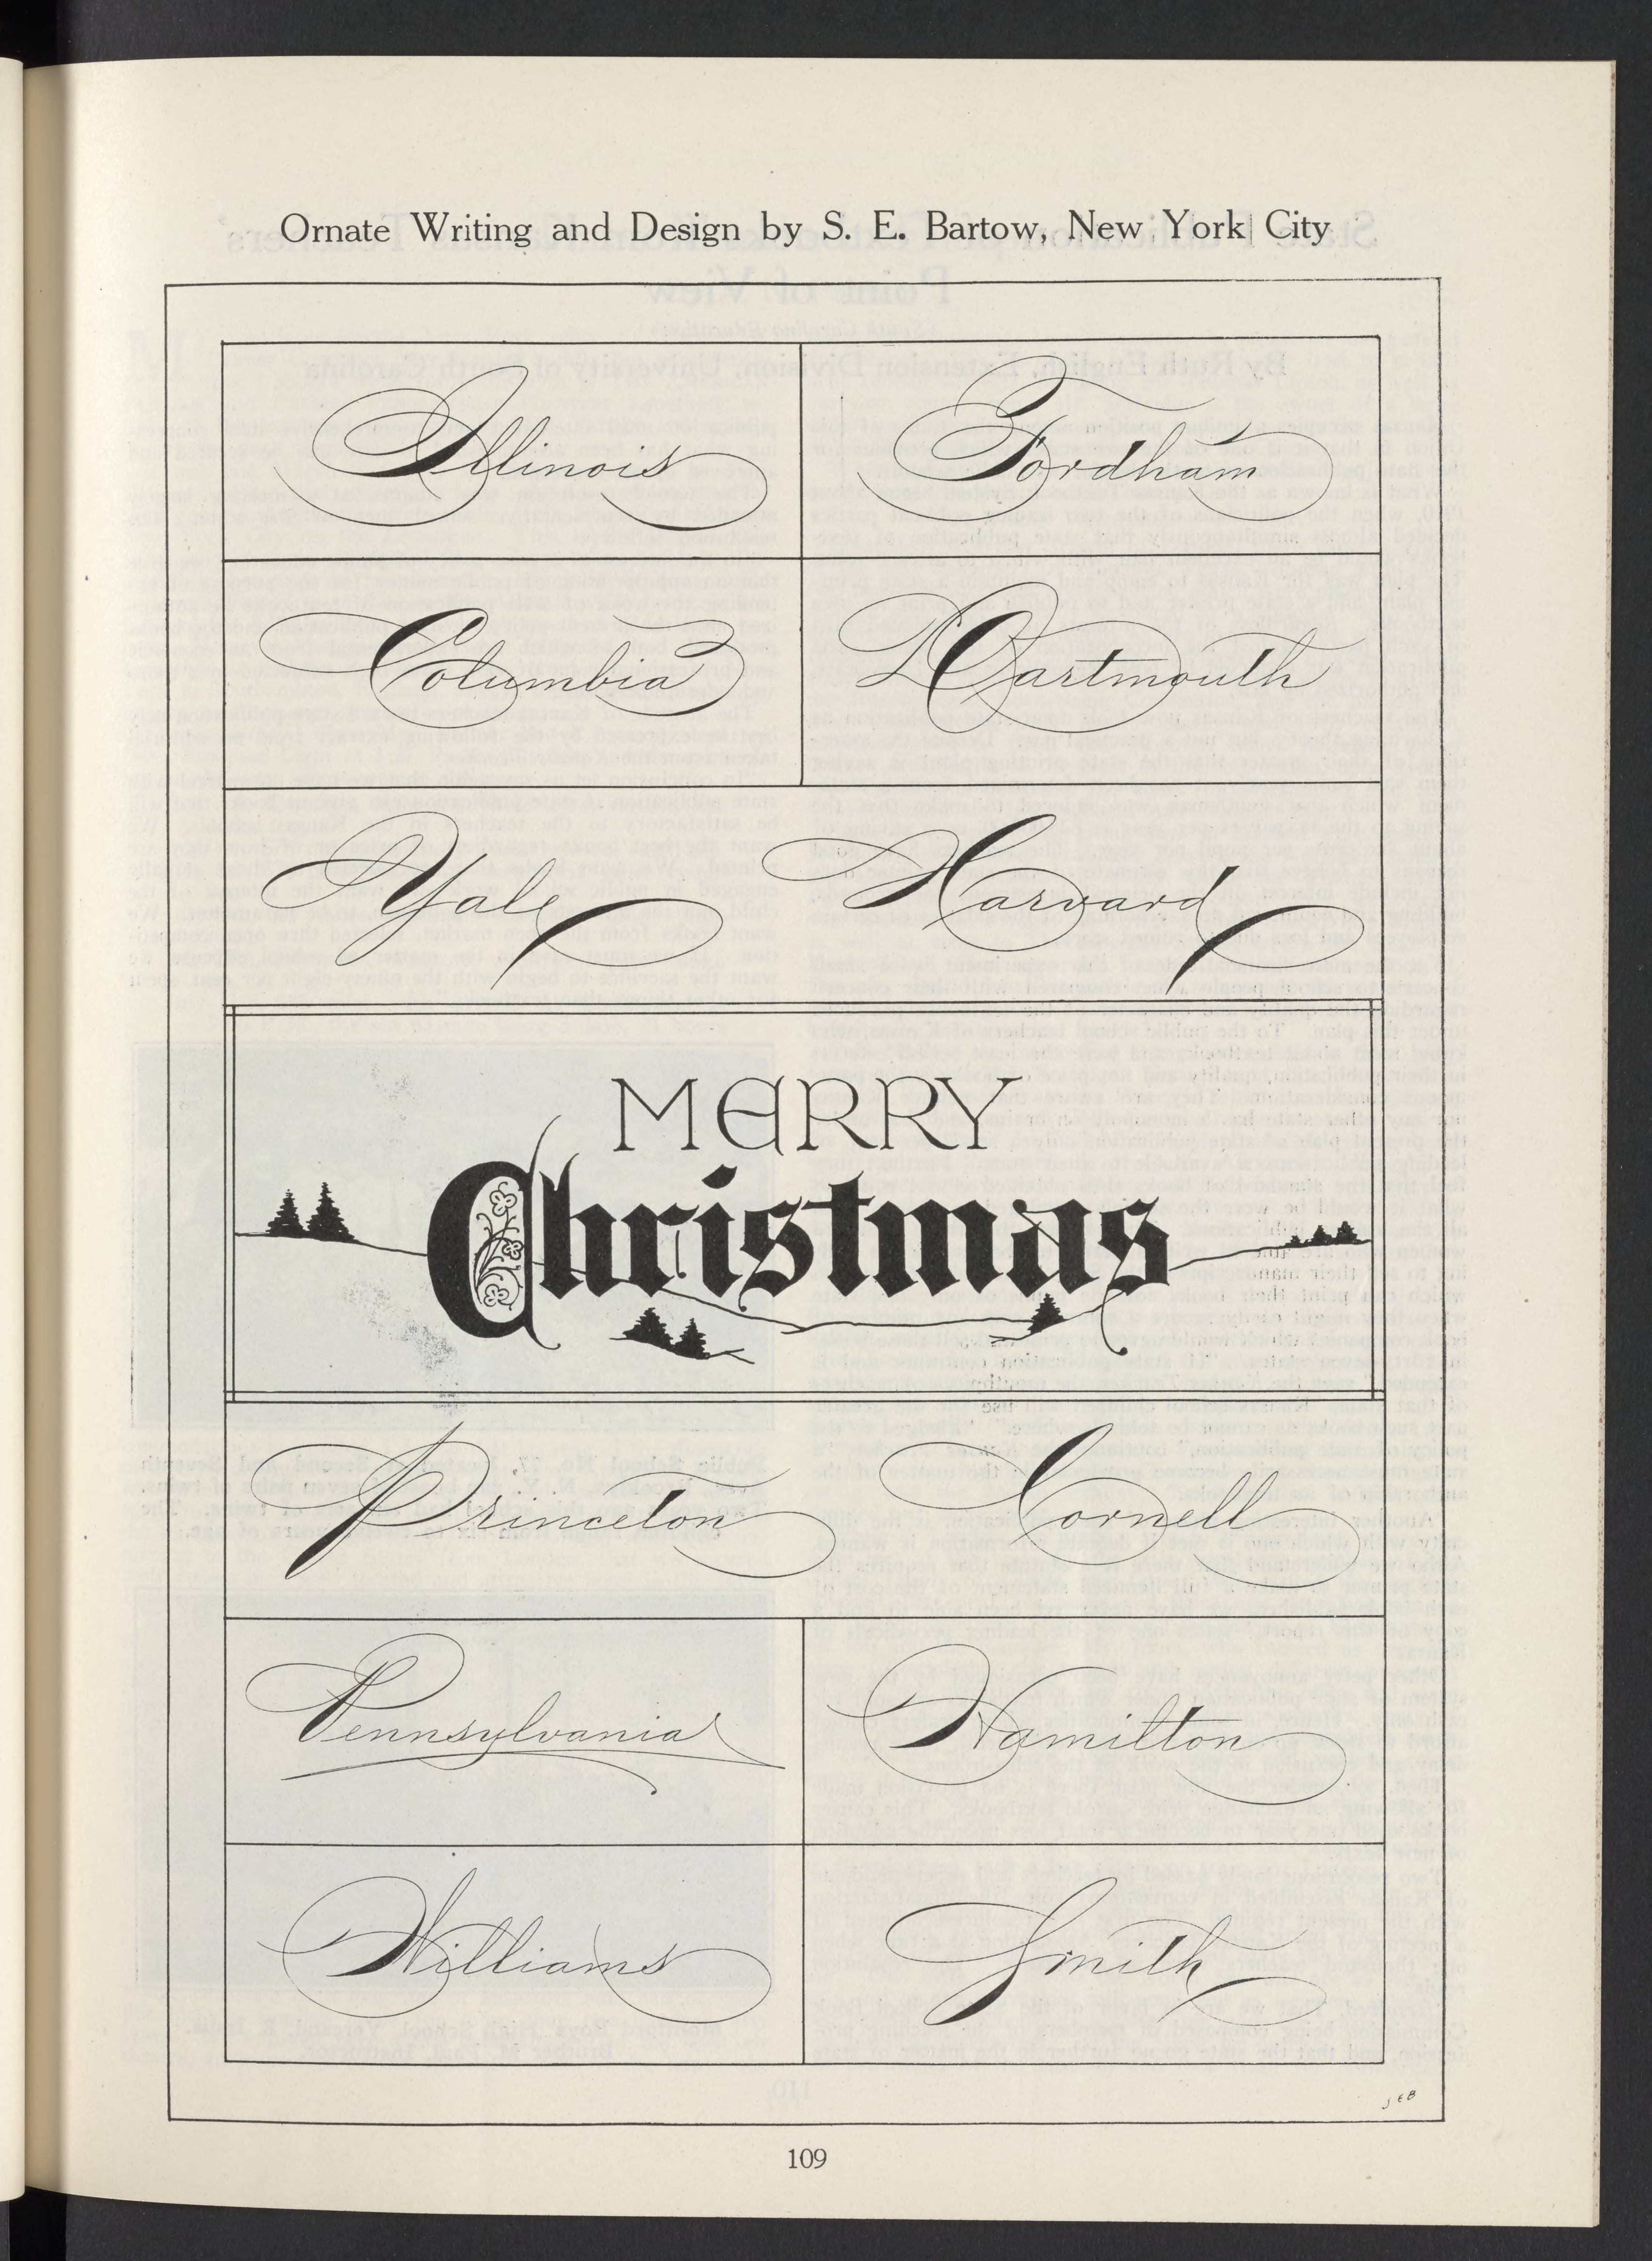 Ornate Writing and Design by S. E. Bartow, New York City
Illinois Fordham
Columbia Dartmouth
Yale Harvard
MERRY
Christmas
Princeton Cornell
Pennsylvania Hamilton
Williams Smith
SEB
109